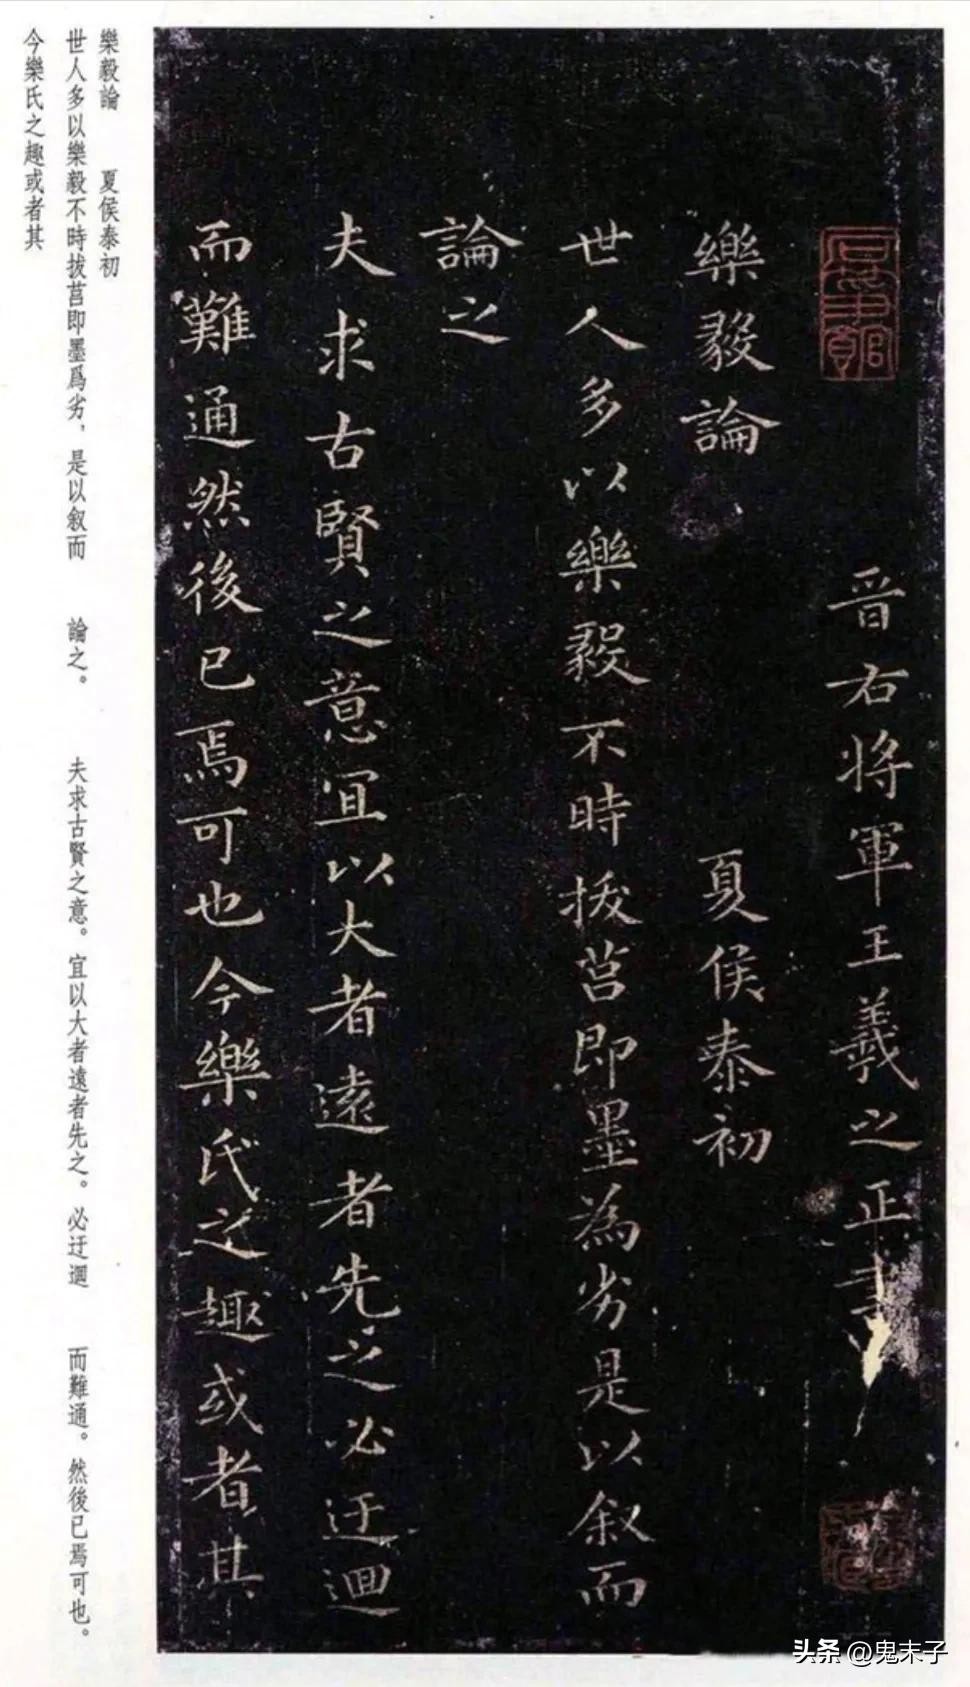 晉右將軍王羲之正書
樂毅論 夏侯泰初
世人多以樂毅不時拔莒即墨為劣是以叙而
論之
夫求古賢之意宜以大者遠者先之必迂迴
而難通然後已焉可也今樂氏之趣或者其
樂毅論 夏侯泰初
世人多以樂毅不時拔莒即墨爲劣，是以叙而 論之。 夫求古賢之意。宜以大者遠者先之。必迂迴 而難通。然後已焉可也。
今樂氏之趣或者其
头条 @鬼末子